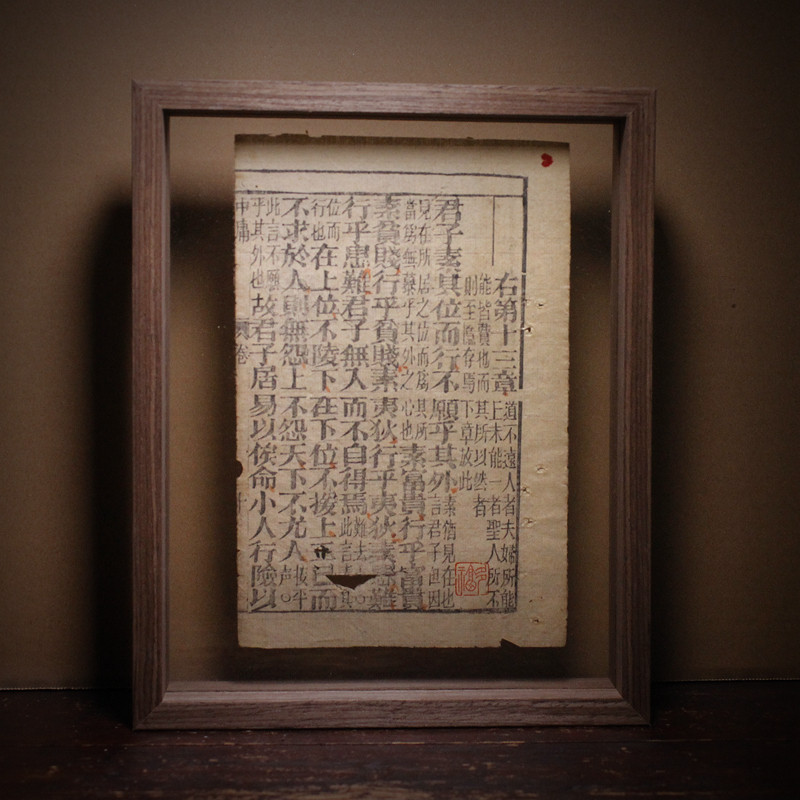 右第十三章
道不遠人者夫婦所能
上未能一者聖人所不
能皆費也而其所以然者
則至隱存焉下章放此
君子素其位而行不願乎其外
素猶見在也
言君子但因
見在所居之位而爲其所
當爲無慕乎其外之心也
素富貴行乎富貴
素貧賤行乎貧賤素夷狄行乎夷狄素患難
行乎患難君子無入而不自得焉
難去
此言其
位而
行也
在上位不陵下在下位不援上正己而
不求於人則無怨上不怨天下不尤人
援平
声○
此言不願
乎其外也
故君子居易以俟命小人行險以
中庸
卷